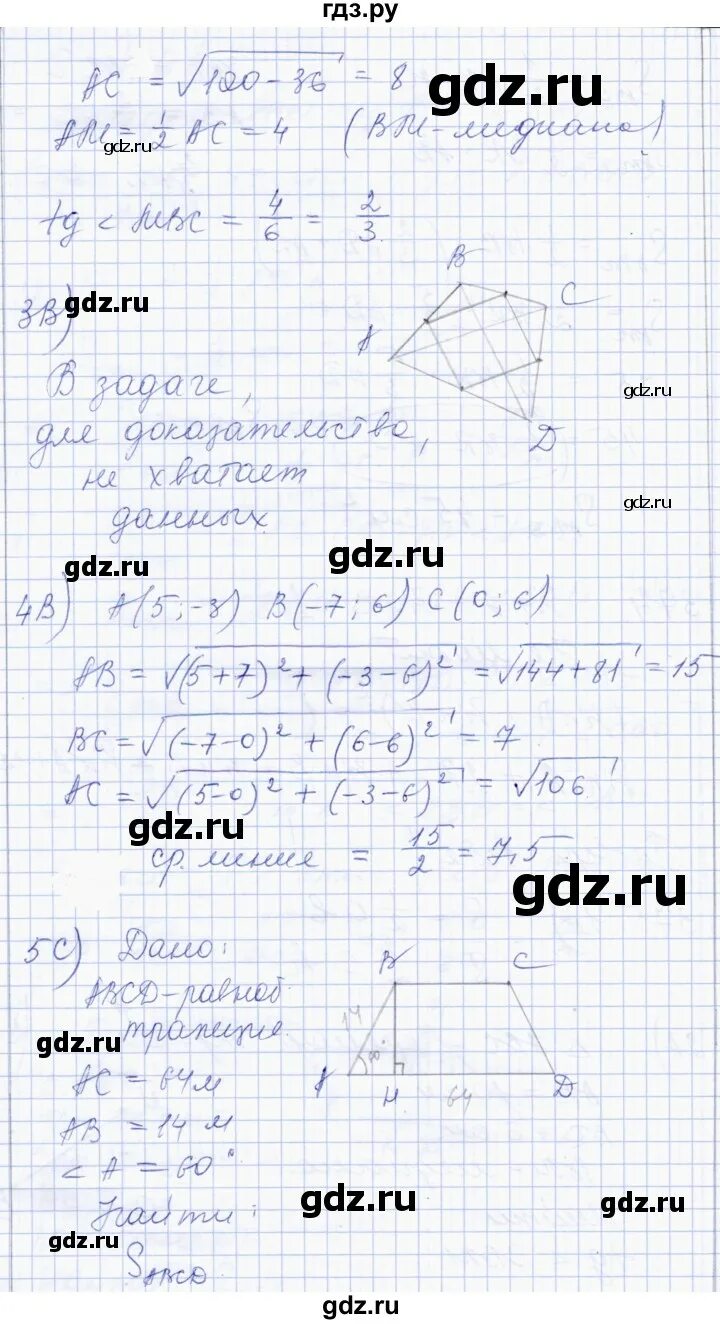 гдз.ру
AC = √100-36 = 8
gdz.ru
AM = 1/2 AC = 4 (BM-медиана)
gdz.ru
tg < MBC = 4/6 = 2/3
3B)
gdz.ru
B
C
A
D
В задаче,
gdz.ru
для доказательства,
не хватает
gdz.ru
данных
gdz.ru
gdz.ru
4B) A(5;-3) B(-7;6) C(0;6)
AB = √(5+7)²+(-3-6)² = √144+81 = 15
BC = √(-7-0)² + (6-6)² = 7
AC = √(5-0)² + (-3-6)² = √106
gdz.ru
ср. линия = 15/2 = 7,5
gdz.ru
5C) Дано:
B
C
ABCD-равноб
трапеция
gdz.ru
14
60°
A
H
64
D
AC = 64м
AB = 14 м
< A = 60°
gdz.ru
gdz.ru
Найти:
gdz.ru
SABCD
gdz.ru